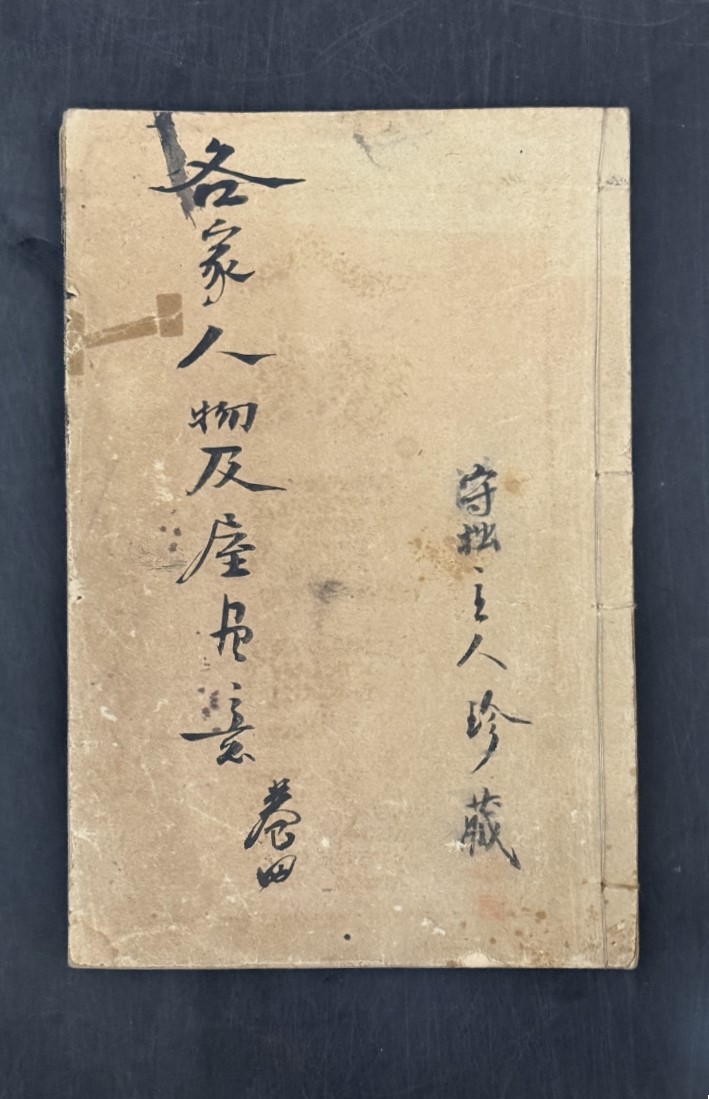 守拙主人珍藏
各家人物及屋意
卷四